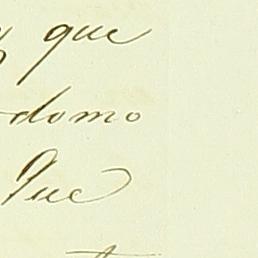 y que
domo
Que